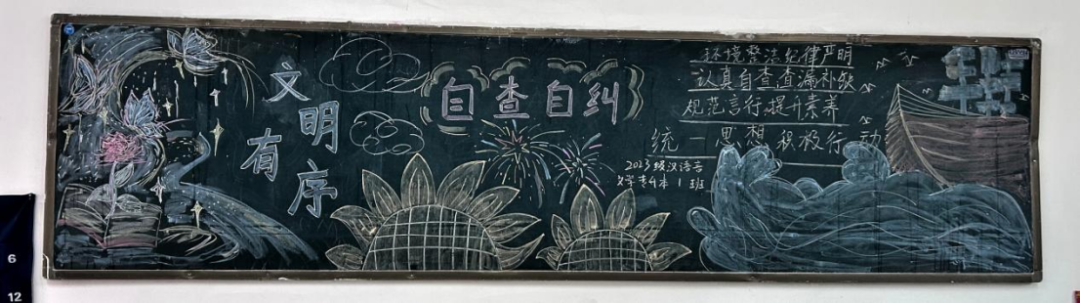 文明
有序
自查自纠
环境整洁纪律严明
认真自查查漏补缺
规范言行提升素养
统一思想积极行动
2023级汉语言
文学专升本1班
6
12